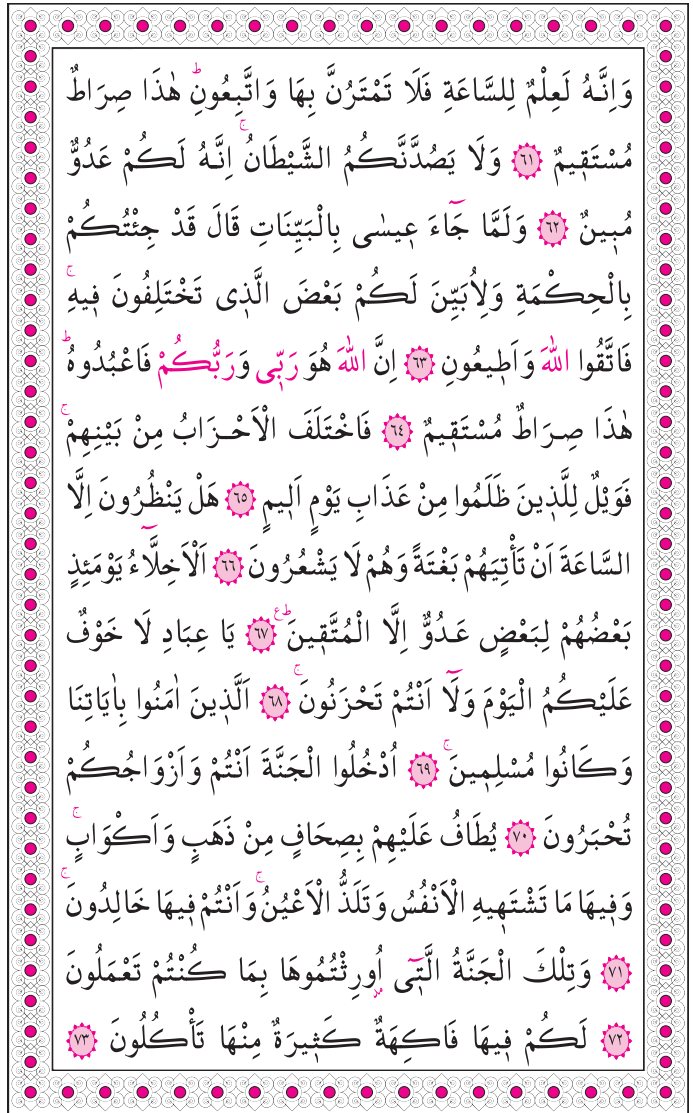 وَاِنَّهُ لَعِلْمٌ لِلسَّاعَةِ فَلَا تَمْتَرُنَّ بِهَا وَاتَّبِعُونِۜ هٰذَا صِرَاطٌ
مُسْتَق۪يمٌ ﴿٦١﴾ وَلَا يَصُدَّنَّكُمُ الشَّيْطَانُۚ اِنَّهُ لَكُمْ عَدُوٌّ
مُب۪ينٌ ﴿٦٢﴾ وَلَمَّا جَٓاءَ ع۪يسٰى بِالْبَيِّنَاتِ قَالَ قَدْ جِئْتُكُمْ
بِالْحِكْمَةِ وَلِاُبَيِّنَ لَكُمْ بَعْضَ الَّذ۪ى تَخْتَلِفُونَ ف۪يهِۚ
فَاتَّقُوا اللّٰهَ وَاَط۪يعُونِ ﴿٦٣﴾ اِنَّ اللّٰهَ هُوَ رَبّ۪ى وَرَبُّكُمْ فَاعْبُدُوهُۜ
هٰذَا صِرَاطٌ مُسْتَق۪يمٌ ﴿٦٤﴾ فَاخْتَلَفَ الْاَحْزَابُ مِنْ بَيْنِهِمْۚ
فَوَيْلٌ لِلَّذ۪ينَ ظَلَمُوا مِنْ عَذَابِ يَوْمٍ اَل۪يمٍ ﴿٦٥﴾ هَلْ يَنْظُرُونَ اِلَّا
السَّاعَةَ اَنْ تَأْتِيَهُمْ بَغْتَةً وَهُمْ لَا يَشْعُرُونَ ﴿٦٦﴾ اَلْاَخِلَّٓاءُ يَوْمَئِذٍ
بَعْضُهُمْ لِبَعْضٍ عَدُوٌّ اِلَّا الْمُتَّق۪ينَۜ ع ﴿٦٧﴾ يَا عِبَادِ لَا خَوْفٌ
عَلَيْكُمُ الْيَوْمَ وَلَٓا اَنْتُمْ تَحْزَنُونَۚ ﴿٦٨﴾ اَلَّذ۪ينَ اٰمَنُوا بِاٰيَاتِنَا
وَكَانُوا مُسْلِم۪ينَۚ ﴿٦٩﴾ اُدْخُلُوا الْجَنَّةَ اَنْتُمْ وَاَزْوَاجُكُمْ
تُحْبَرُونَ ﴿٧٠﴾ يُطَافُ عَلَيْهِمْ بِصِحَافٍ مِنْ ذَهَبٍ وَاَكْوَابٍۚ
وَف۪يهَا مَا تَشْتَه۪يهِ الْاَنْفُسُ وَتَلَذُّ الْاَعْيُنُۚ وَاَنْتُمْ ف۪يهَا خَالِدُونَۚ
﴿٧١﴾ وَتِلْكَ الْجَنَّةُ الَّت۪ٓى اُو۫رِثْتُمُوهَا بِمَا كُنْتُمْ تَعْمَلُونَ
﴿٧٢﴾ لَكُمْ ف۪يهَا فَاكِهَةٌ كَث۪يرَةٌ مِنْهَا تَأْكُلُونَ ﴿٧٣﴾